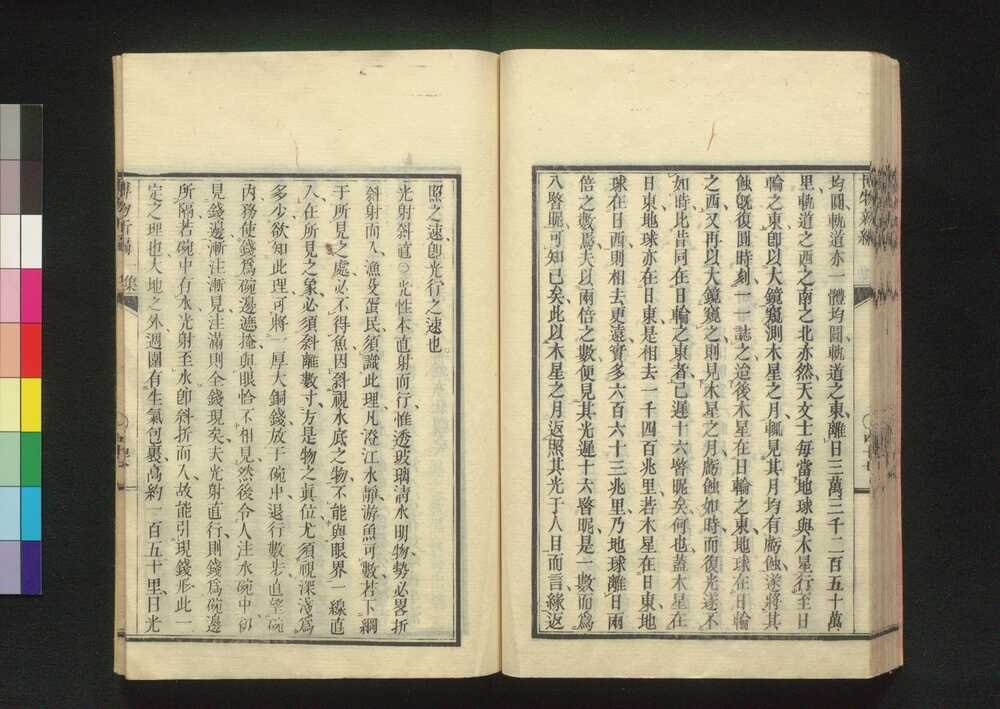 均圓軌道亦一體均圓軌道之東離日三萬三千二百五十萬
里軌道之西之南之北亦然天文士每當地球與木星行至日
輪之東卽以大鏡窺測木星之月輒見其月均有虧蝕遂將其
蝕旣復圓時刻一一誌之迨後木星在日輪之東地球在日輪
之西又再以大鏡窺之則見木星之月虧蝕如時而復光遂不
如時比皆同在日輪之東者已遲十六瞥呢矣何也蓋木星在
日東地球亦在日東是相去一千四百兆里若木星在日東地
球在日西則相去更遠實多六百六十三兆里乃地球離日兩
倍之數爲夫以兩倍之數便見其光遲十六瞥呢是一數而爲
八瞥呢可知已矣此以木星之月返照其光于人目而言緣返
照之速卽光行之速也
光射斜直○光性本直射而行惟透玻璃淸水明物勢必畧折
斜射而入漁父蛋民須識此理凡澄江水靜游魚可數若下綱
于所見之處必不得魚因斜視水底之物不能與眼界一線直
人在所見之象必須斜離數寸方是物之眞位尤須視深淺爲
多少欲知此理可將一厚大銅錢放于碗中退行數步直望碗
內務使錢爲碗邊遮掩與眼恰不相見然後令人注水碗中卽
見錢邊漸注漸見注滿則全錢現矣夫光射直行則錢爲碗邊
所隔若碗中有水光射至水卽斜折而入故能引現錢形此一
定之理也大地之外週圍有生氣包裹高約一百五十里日光